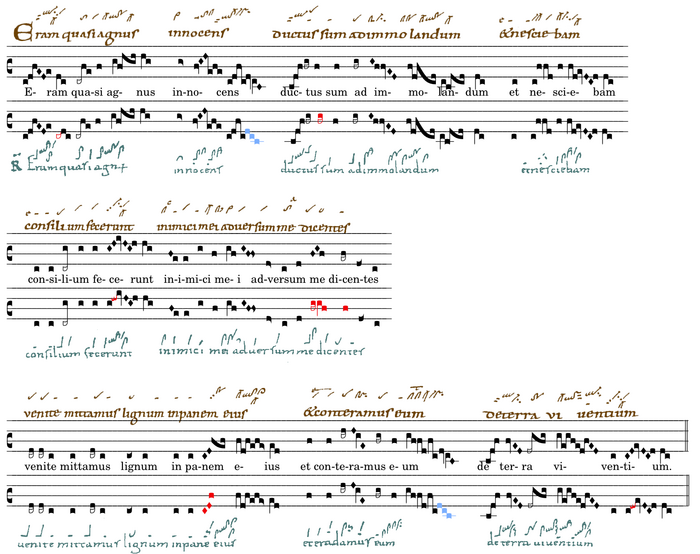 Eram quasi agnus innocens ductus sum ad immolandum & nescie bam
E- ram qua-si ag- nus in-no- cens duc- tus sum ad im- mo- lan- dum et ne- sci-e- bam
R Eram quasi agn innocens ductus sum ad immolandum et nesciebam
consilium fecerunt inimici mei adversum me dicentes
con-si-li-um fe- ce- runt in-i-mi-ci me- i ad-versum me di-cen-tes
consilium fecerunt inimici mei adversum me dicentes
venite mittamus lignum inpanem eius & conteramus eum de terra vi ventium
venite mittamus lignum in pa-nem e- ius et con-te-ra-mus e- um de ter- ra vi- ven-ti- um.
venite mittamus lignum inpane eius et eradamus eum de terra viventium